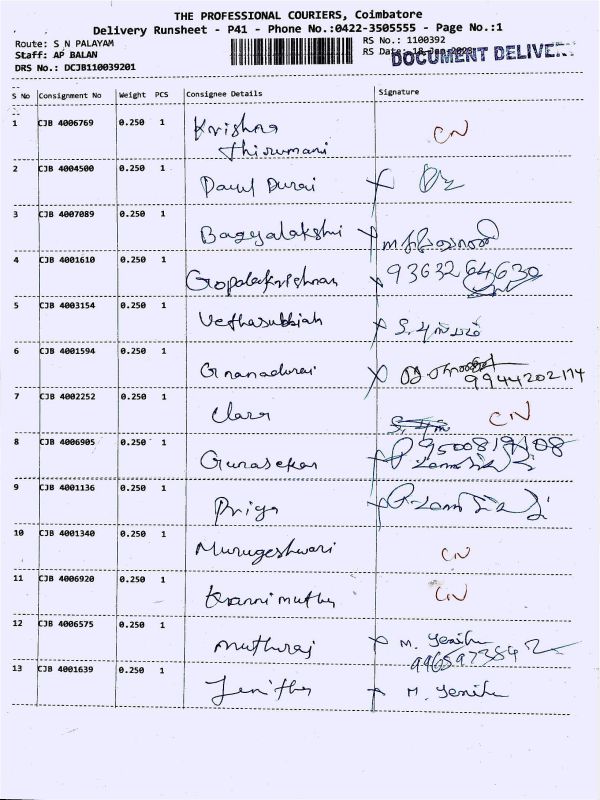 THE PROFESSIONAL COURIERS, Coimbatore
Delivery Runsheet - P41 - Phone No.:0422-3505555 - Page No.:1
Route: S N PALAYAM
RS No.: 1100392
Staff: AP BALAN
RS Date: 18-Jan-2023
DOCUMENT DELIVE
DRS No.: DCJB110039201
S No Consignment No Weight PCS Consignee Details Signature
1 CJB 4006769 0.250 1 Krishna CN
thirumani
2 CJB 4004500 0.250 1 Paul Durai
3 CJB 4007089 0.250 1 Bagyalakshmi
4 CJB 4001610 0.250 1 Gopalakrishnan 9363264630
5 CJB 4003154 0.250 1 Vethasubbiah
6 CJB 4001594 0.250 1 Gnanadurai
9944202174
7 CJB 4002252 0.250 1 Clara CN
8 CJB 4006905 0.250 1 Gunasekar
9 CJB 4001136 0.250 1 Priya
10 CJB 4001340 0.250 1 Murugeshwari CN
11 CJB 4006920 0.250 1 CN
12 CJB 4006575 0.250 1 muthuraj M. Jenithu
13 CJB 4001639 0.250 1 Jenithu M. Jenithu